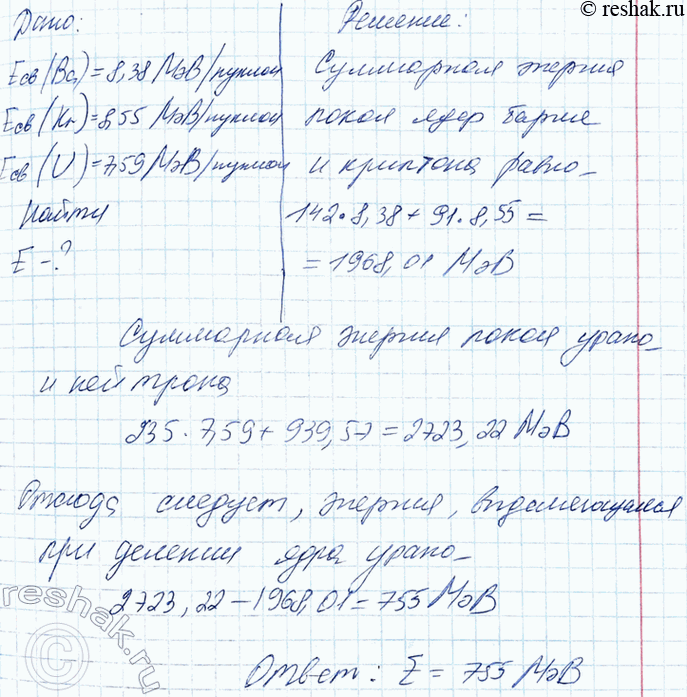 © reshak.ru
Дано:
Eсв(Ba)=8,38 МэВ/нуклон
Eсв(Kr)=8,55 МэВ/нуклон
Eсв(U)=7,59 МэВ/нуклон
Найти
E-?
Решение:
Суммарная энергия
покоя ядер бария
и криптона равно-
142·8,38+91·8,55=
=1968,01 МэВ
Суммарная энергия покоя урана
и нейтрона
235·7,59+939,57=2723,22 МэВ
Отсюда следует, энергия, выделяющаяся
при делении ядра урана-
2723,22-1968,01=755 МэВ
Ответ: E=755 МэВ
reshak.ru
©